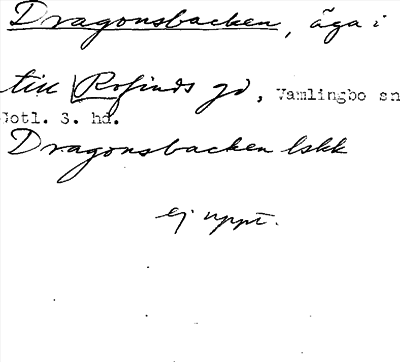 Dragonsbacken, äga i
till Rofinds gd, Vamlingbo sn
Gotl. S. hd.
Dragonsbacken lskk
ej uppt.